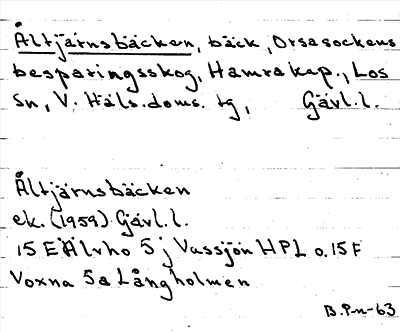 Åltjärnsbäcken, bäck, Orsasockens
besparingsskog, Hamra kap., Los
Sn, V. Häls. doms. tg, Gävl. l.
Åltjärnsbäcken
ek. (1959) Gävl. l.
15 E Älvho 5 j Vassjön HPL o. 15 F
Voxna 5a Långholmen
B. P-n-63